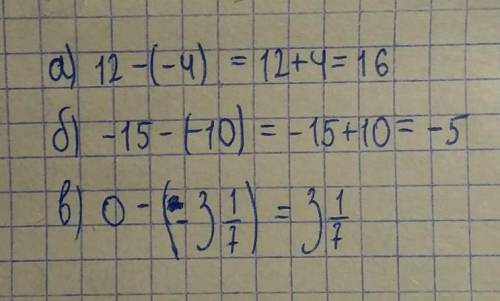 а) 12 - (-4) = 12+4 = 16
б) -15 - (-10) = -15+10 = -5
в) 0 - (-3 1/7) = 3 1/7